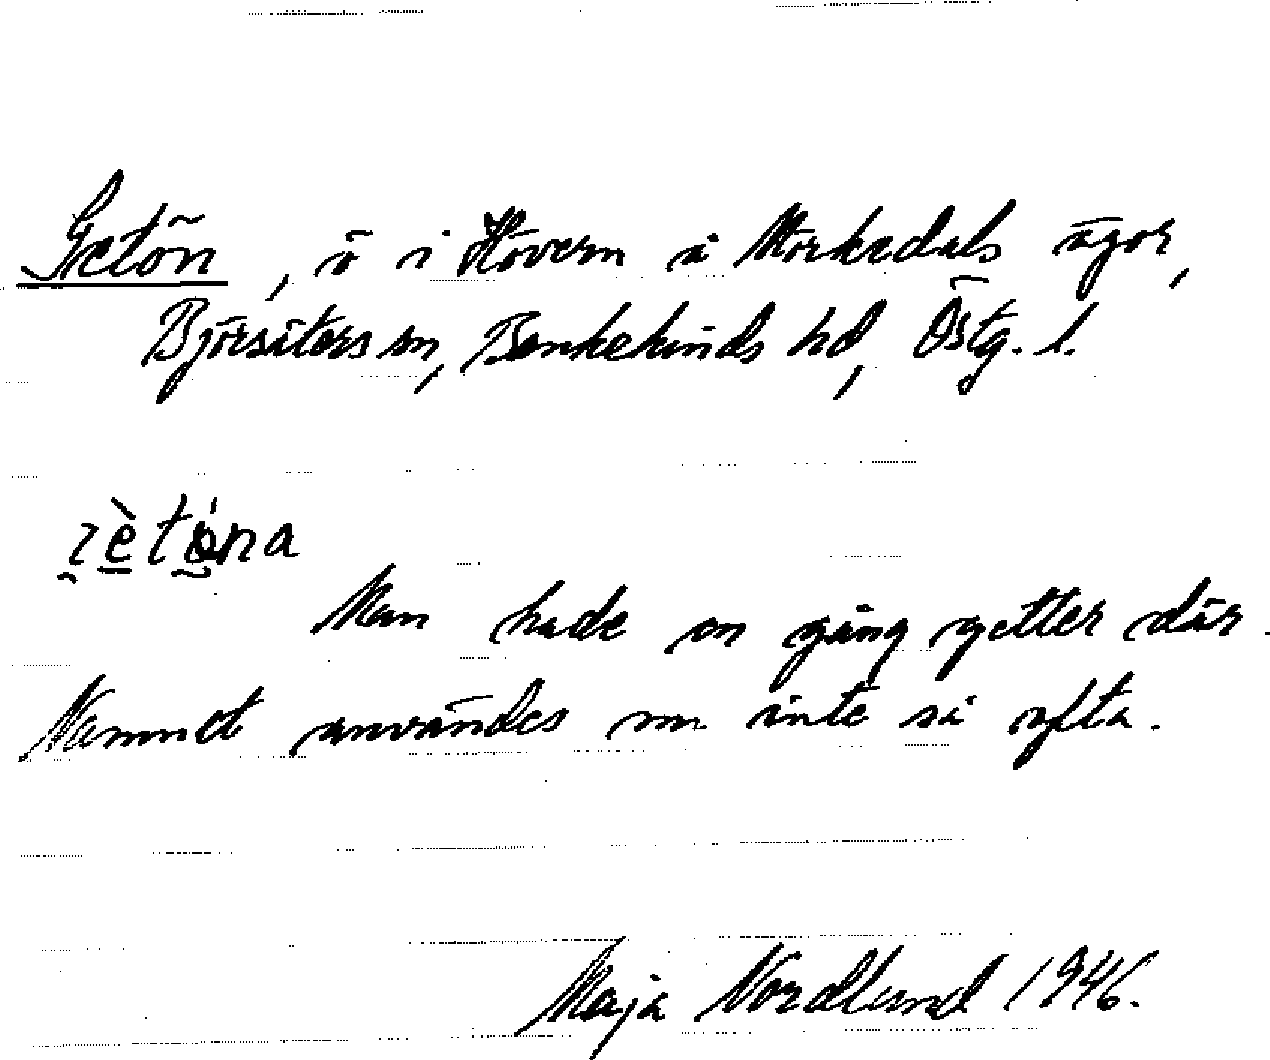 Getön, ö i Hövern å Mörkedals ägor,
Björsäters sn, Bankekinds hd, Östg. l.
Man hade en gång getter där.
Namnet användes nu inte så ofta.
Maja Nordlund 1946.